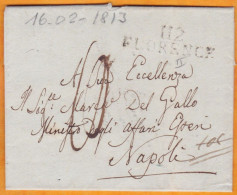 16-02-1813
112
FLORENCE
A Sua Eccellenza
Il Sigre Marche Del Gallo
Ministro degli affari Esteri
Napoli